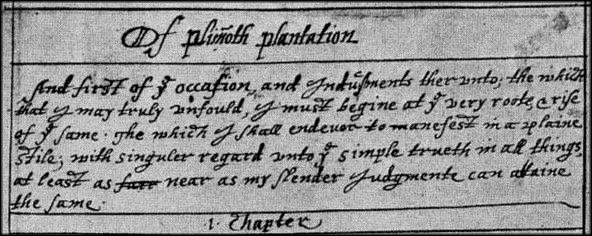 Of plim̃oth plantation
And first of yͤ occasion, and Indusments ther vnto; the which
that I may truly vnfould, I must begine at yͤ very roote, & rise
of yͤ same. The which I shall endevor to manefest in a plaine
stile; with singuler regard vnto yͤ simple trueth in all things,
at least as farr near as my slender Judgmente can attaine
the same.
1. Chapter